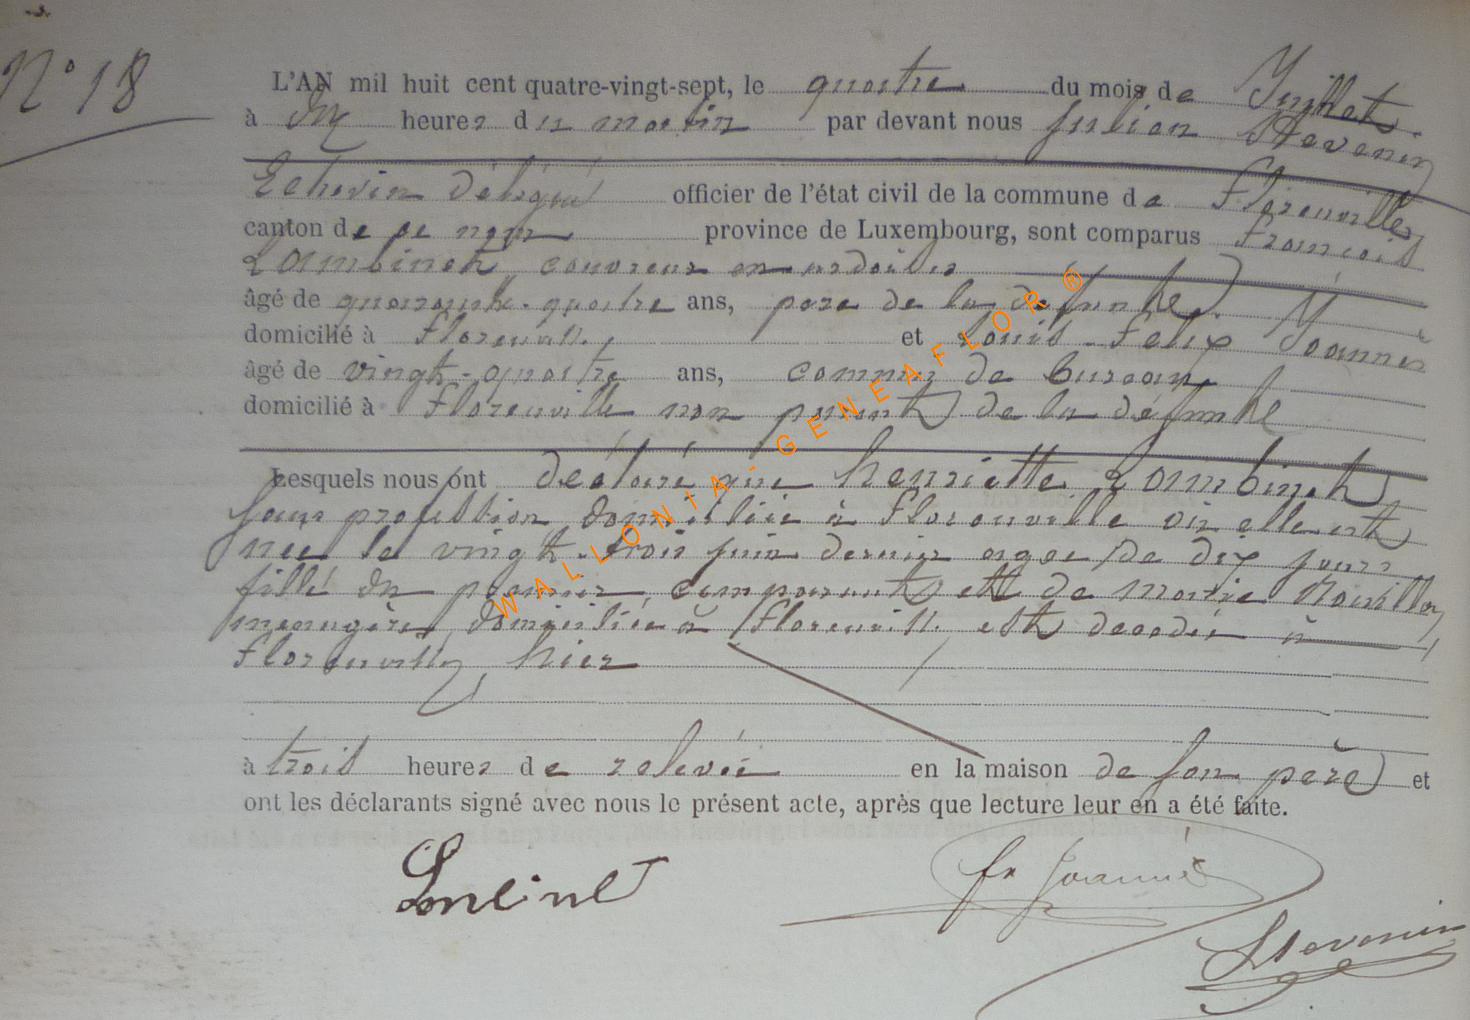 N° 18
L'AN mil huit cent quatre-vingt-sept, le quatre du mois de Juillet
à dix heures du matin par devant nous Julien Stevenin
Echevin délégué officier de l'état civil de la commune de Florenville
canton de ce nom province de Luxembourg, sont comparus François
Lambinet, couvreur en ardoises
âgé de quarante-quatre ans, père de la défunte
domicilié à Florenville, et Louis Felix Joannès
âgé de vingt-quatre ans, commis de bureau
domicilié à Florenville non parent de la défunte
Lesquels nous ont déclaré que henriette Lambinet
sans profession, domiciliée à Florenville où elle est
née le vingt-trois juin dernier agée de dix jours
fille du premier comparant et de Marie
menagère, domiciliée à Florenville, est decedée à
Florenville, hier
à trois heures de relevée en la maison de son père et
ont les déclarants signé avec nous le présent acte, après que lecture leur en a été faite.
Stevenin
WALLONIA-GENEAFLOR ®